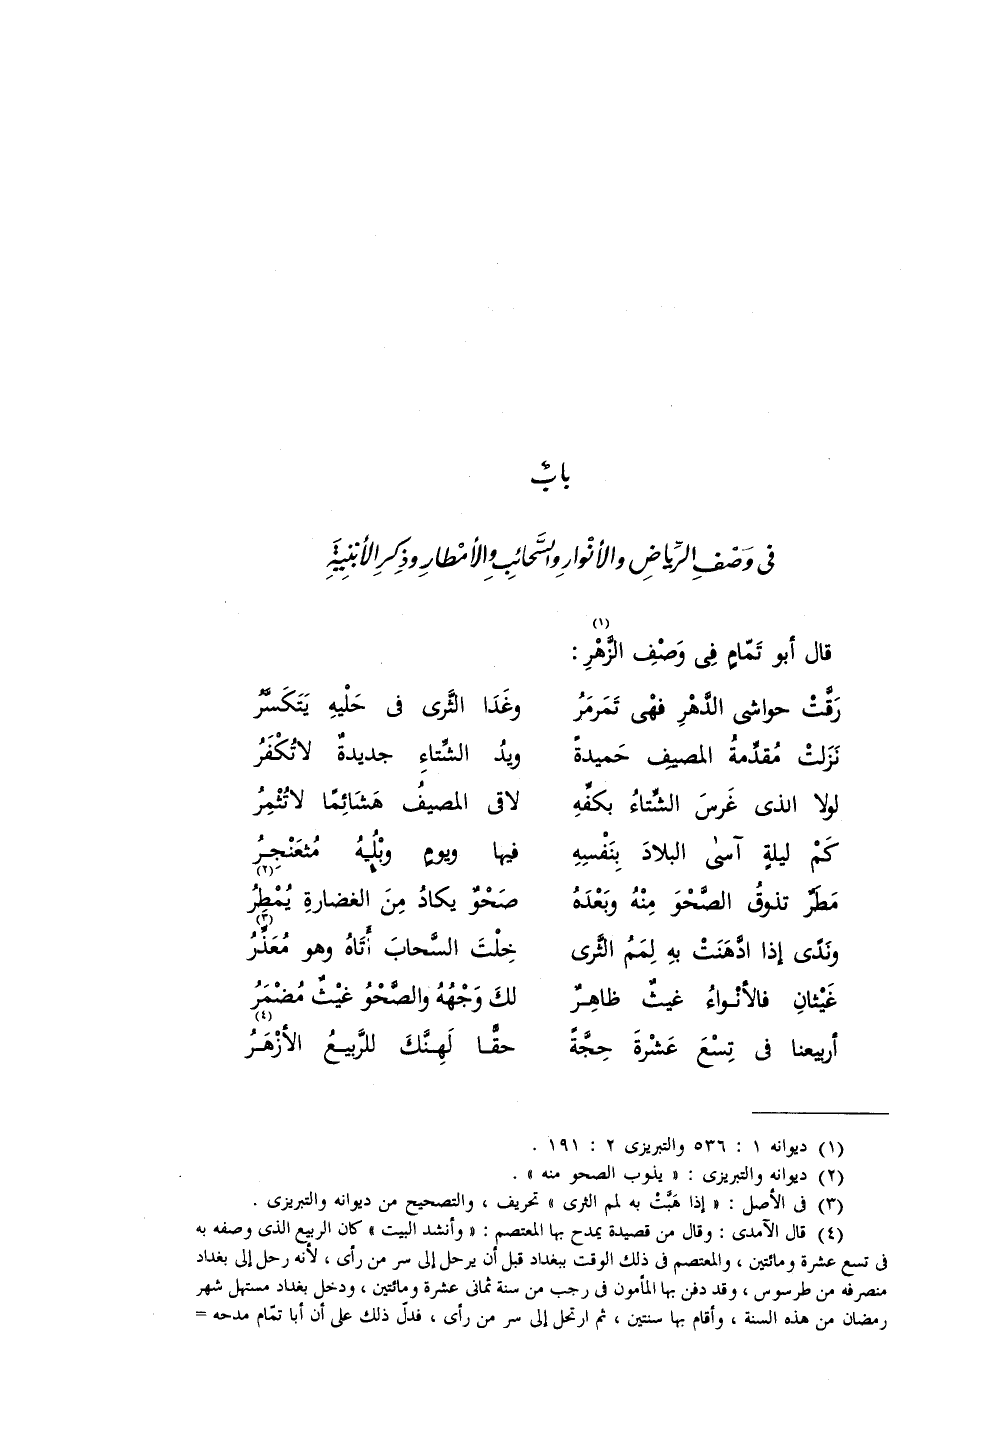 بابٌ
فى وَصْفِ الرِّيَاضِ والأنْوارِ والسَّحائِبِ والأمْطارِ وذِكرِ الأبْنِيَةِ
قال أبو تَمّامٍ فِى وَصْفِ الزَّهْرِ : (١)
رَقَّتْ حواشى الدَّهْرِ فهْى تَمَرمَرُ وغَدَا الثَّرى فى حَلْيِهِ يَتَكَسَّرُ
نَزَلتْ مُقدِّمةُ المصيِف حَميدةً ويدُ الشِّتاءِ جديدةٌ لاتُكْفَرُ
لولا الذى غَرسَ الشِّتاءُ بكفِّهِ لاقى المصيفُ هَشَائِمًا لاتُثْمِرُ
كَمْ ليلةٍ آسىٰ البلادَ بِنَفْسِهِ فيها ويومٍ وبْلُهُ مُثعَنْجِرُ
مَطَرٌ تذوقُ الصَّحْوَ مِنْهُ وبَعْدَهُ صَحْوٌ يكادُ مِنَ الغضارةِ يُمْطِرُ (٢)
ونَدًى إذا ادَّهَنَتْ بهِ لِمَمُ الثَّرى خِلْتَ السَّحابَ أَتَاهُ وهو مُعَذِّرُ (٣)
غَيْثانِ فالأنْواءُ غيثٌ ظاهِرٌ لكَ وَجْهُهُ والصَّحْوُ غيْثٌ مُضْمَرُ
أربيعنا فى تِسْعَ عَشْرةَ حِجَّةً حقًّا لَهِنَّكَ للرَّبيعُ الأزْهَرُ (٤)
(١) ديوانه ١ : ٥٣٦ والتبريزى ٢ : ١٩١ .
(٢) ديوانه والتبريزى : « يذوب الصحو منه » .
(٣) فى الأصل : « إذا هَبَّتْ به لمم الثرى » تحريف ، والتصحيح من ديوانه والتبريزى .
(٤) قال الآمدى : وقال من قصيدة يمدح بها المعتصم : « وأنشد البيت » كان الربيع الذى وصفه به
فى تسع عشرة ومائتين ، والمعتصم فى ذلك الوقت ببغداد قبل أن يرحل إلى سر من رأى ، لأنه رحل إلى بغداد
منصرفه من طرسوس ، وقد دفن بها المأمون فى رجب من سنة ثمانى عشرة ومائتين ، ودخل بغداد مستهل شهر
رمضان من هذه السنة ، وأقام بها سنتين ، ثم ارتحل إلى سر من رأى ، فدلّ ذلك على أن أبا تمّام مدحه =